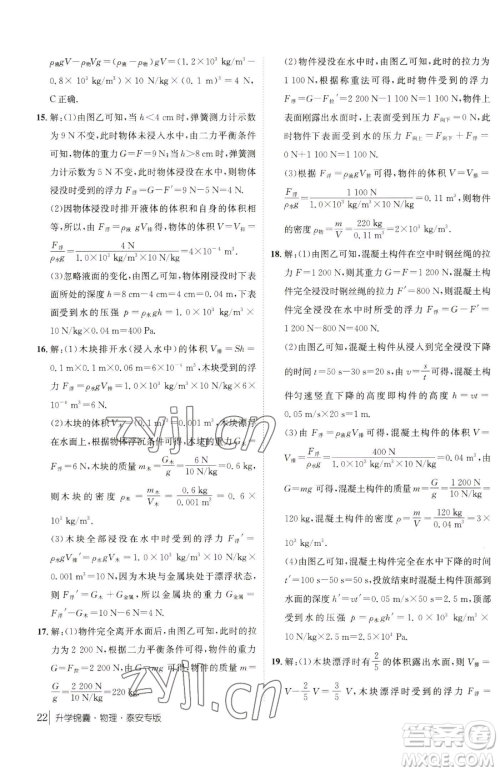 ρ液gV－ρ水gV＝(1.2×10³ kg/m³－
0.8×10³ kg/m³)×10 N/kg×V＝4 N，
C正确.
15. 解:(1)由图乙可知，当h＜4 cm时，弹簧测力计
为9 N不变，此时物体未浸入水中，由二力平衡条件
可得，物体的重力G＝F＝9 N；当h＞8 cm，弹簧测
力计的示数为5 N不变，此时物体浸没在水中，则物
体浸没时的浮力F浮＝G－F′＝9 N－5 N＝4 N.
(2)因物体浸没时排开液体的体积和自身的体积相
等，所以，由F浮＝ρ液gV排得，物体的体积V＝V排＝
F浮/ρ水g＝4 N/1.0×10³ kg/m³×10 N/kg＝4×10⁻⁴ m³.
(3)忽略液面的变化，由图乙可知，物体刚浸没时下
表面所处的深度h＝8 cm－4 cm＝4 cm＝0.04 m，下
底面受到水的压强p＝ρ水gh＝1.0×10³ kg/m³×
10 N/kg×0.04 m＝400 Pa.
16. 解:(1)木块排开水(浸入水中)的体积V排＝Sh＝
0.1 m×0.1 m×0.06 m＝6×10⁻⁴ m³，木块受到的浮
力F浮＝ρ水gV排＝1.0×10³ kg/m³×10 N/kg×6×
10⁻⁴ m³＝6 N.
(2)木块的体积V木＝(0.1 m)³＝0.001 m³，木块漂浮
在水面上，根据物体浮沉条件可得，木块的重力G木＝
F浮＝6 N，木块的质量m木＝G木/g＝6 N/10 N/kg＝0.6 kg，
则木块的密度ρ木＝m木/V木＝0.6 kg/0.001 m³＝0.6×
10³ kg/m³.
(3)木块全部浸没在水中受到的浮力F浮′＝
ρ水gV排′＝1.0×10³ kg/m³×10 N/kg×
0.001 m³＝10 N，木块与金属块处于漂浮状态，
则F浮′＝G木＋G金属，所以，G金属＝F浮′－G木＝
10 N－6 N＝4 N.
17. 解:(1)物件完全离开水面后，由图乙可知，拉力为
2 200 N，根据二力平衡条件可得，物件的重力
G＝F拉＝2 200 N，由G＝mg可得，物件的质量m＝
G/g＝2 200 N/10 N/kg＝220 kg.
(2)物件浸没在水中时，由图乙可知，此时的拉力为
1 100 N，根据称重法可得，此时物件受到的浮力
F浮＝G－F拉′＝2 200 N－1 100 N＝1 100 N.
(3)由F浮＝ρ液gV排可得，物件的体积V＝
V排＝F浮/ρ水g＝1 100 N/1.0×10³ kg/m³×10 N/kg＝0.11 m³，物件
的密度ρ物＝m/V＝220 kg/0.11 m³＝2×10³ kg/m³.
18. 解:(1)由图乙可知，混凝土构件在空中时钢丝绳的
拉力F＝1 200 N，则其重力G＝F＝1 200 N，混凝土
构件完全浸没时钢丝绳的拉力F′＝800 N，则构件
完全浸没在水中时受到的浮力F浮＝G－F′＝
1 200 N－800 N＝400 N.
(2)由图乙可知，混凝土构件从浸入到完全浸没下降
的时间t＝50 s－30 s＝20 s，由v＝s/t可得，构件
匀速竖直下降的高度即构件的高度h＝vt＝
0.05 m/s×20 s＝1 m.
(3)由F浮＝ρ液gV排可得，混凝土构件的体积V＝
V排＝F浮/ρ水g＝400 N/1.0×10³ kg/m³×10 N/kg＝0.04 m³，由
G＝mg可得，混凝土构件的质量m＝G/g＝1 200 N/10 N/kg＝
120 kg，混凝土构件的密度ρ＝m/V＝120 kg/0.04 m³＝3×
10³ kg/m³.
(4)由图乙可知，混凝土构件完全在水中下降的时间
19. 解:(1)木块漂浮时有2/5的体积露出水面，则V排＝
22 升学锦囊·物理·泰安专版
zyjl.cn
zyjl.cn
答案圈
MXQE.COM